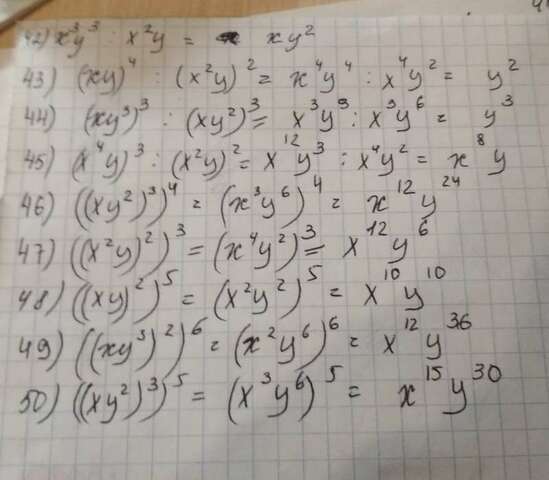 42) x³y³ : x²y = xy²
43) (xy)⁴ : (x²y)² = x⁴y⁴ : x⁴y² = y²
44) (xy³)³ : (xy²)³ = x³y⁹ : x³y⁶ = y³
45) (x⁴y)³ : (x²y)² = x¹²y³ : x⁴y² = x⁸y
46) ((xy²)³)⁴ = (x³y⁶)⁴ = x¹²y²⁴
47) ((x²y)²)³ = (x⁴y²)³ = x¹²y⁶
48) ((xy)²)⁵ = (x²y²)⁵ = x¹⁰y¹⁰
49) ((xy³)²)⁶ = (x²y⁶)⁶ = x¹²y³⁶
50) ((xy²)³)⁵ = (x³y⁶)⁵ = x¹⁵y³⁰